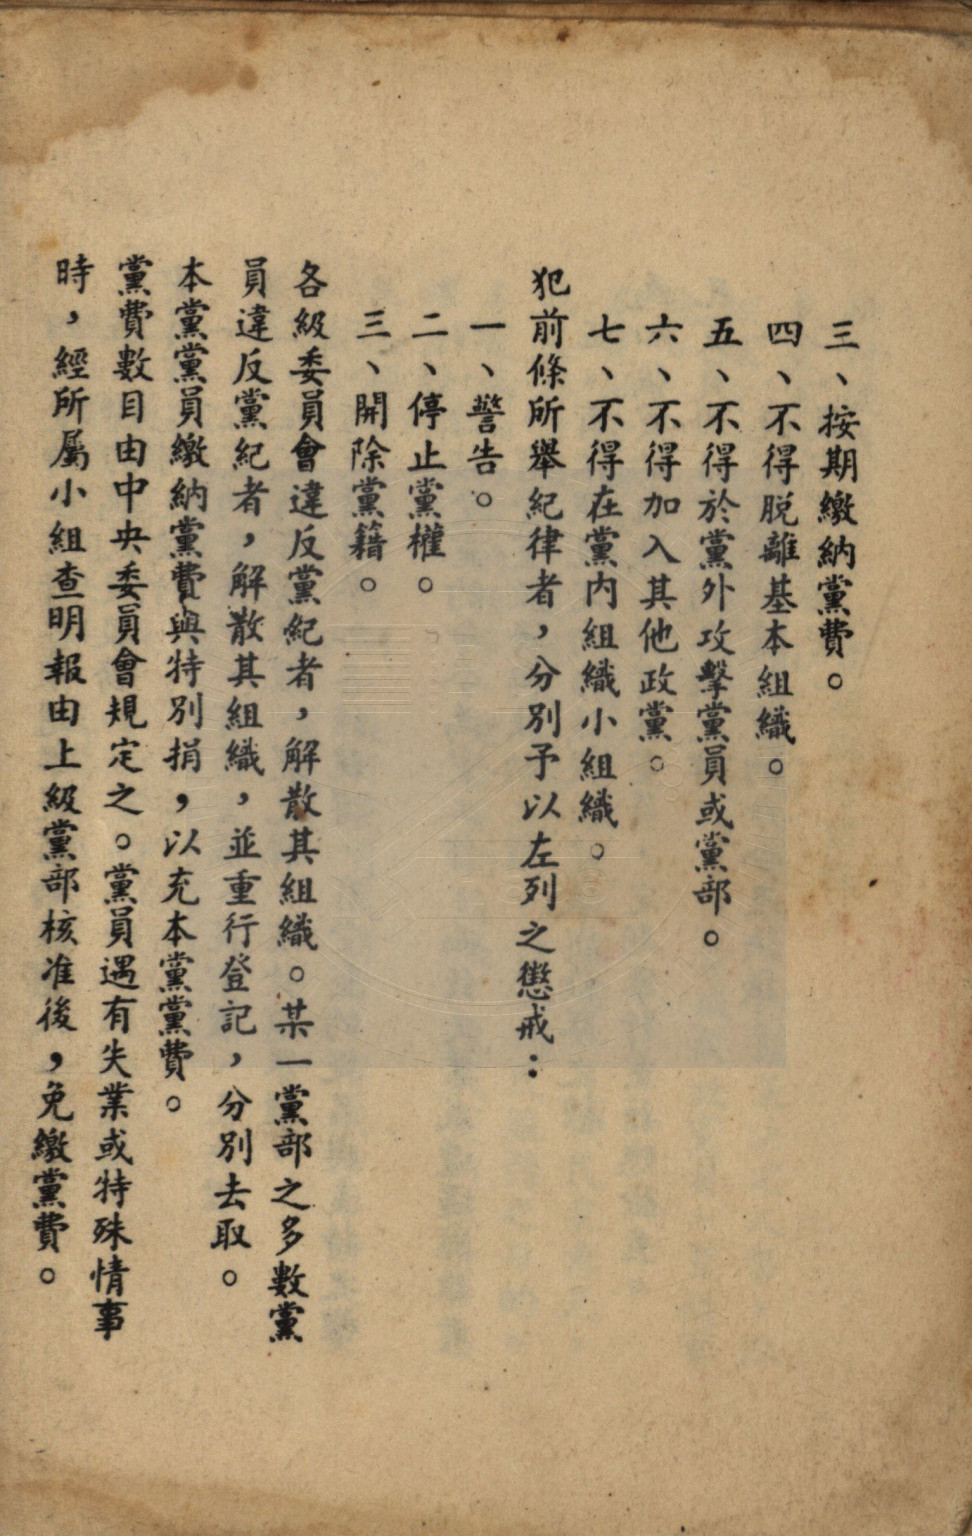 三、按期繳納黨費。
四、不得脫離基本組織。
五、不得於黨外攻擊黨員或黨部。
六、不得加入其他政黨。
七、不得在黨內組織小組織。
犯前條所舉紀律者，分別予以左列之懲戒：
一、警告。
二、停止黨權。
三、開除黨籍。
各級委員會違反黨紀者，解散其組織。某一黨部之多數黨
員違反黨紀者，解散其組織，並重行登記，分別去取。
本黨黨員繳納黨費與特別捐，以充本黨黨費。
黨費數目由中央委員會規定之。黨員遇有失業或特殊情事
時，經所屬小組查明報由上級黨部核准後，免繳黨費。